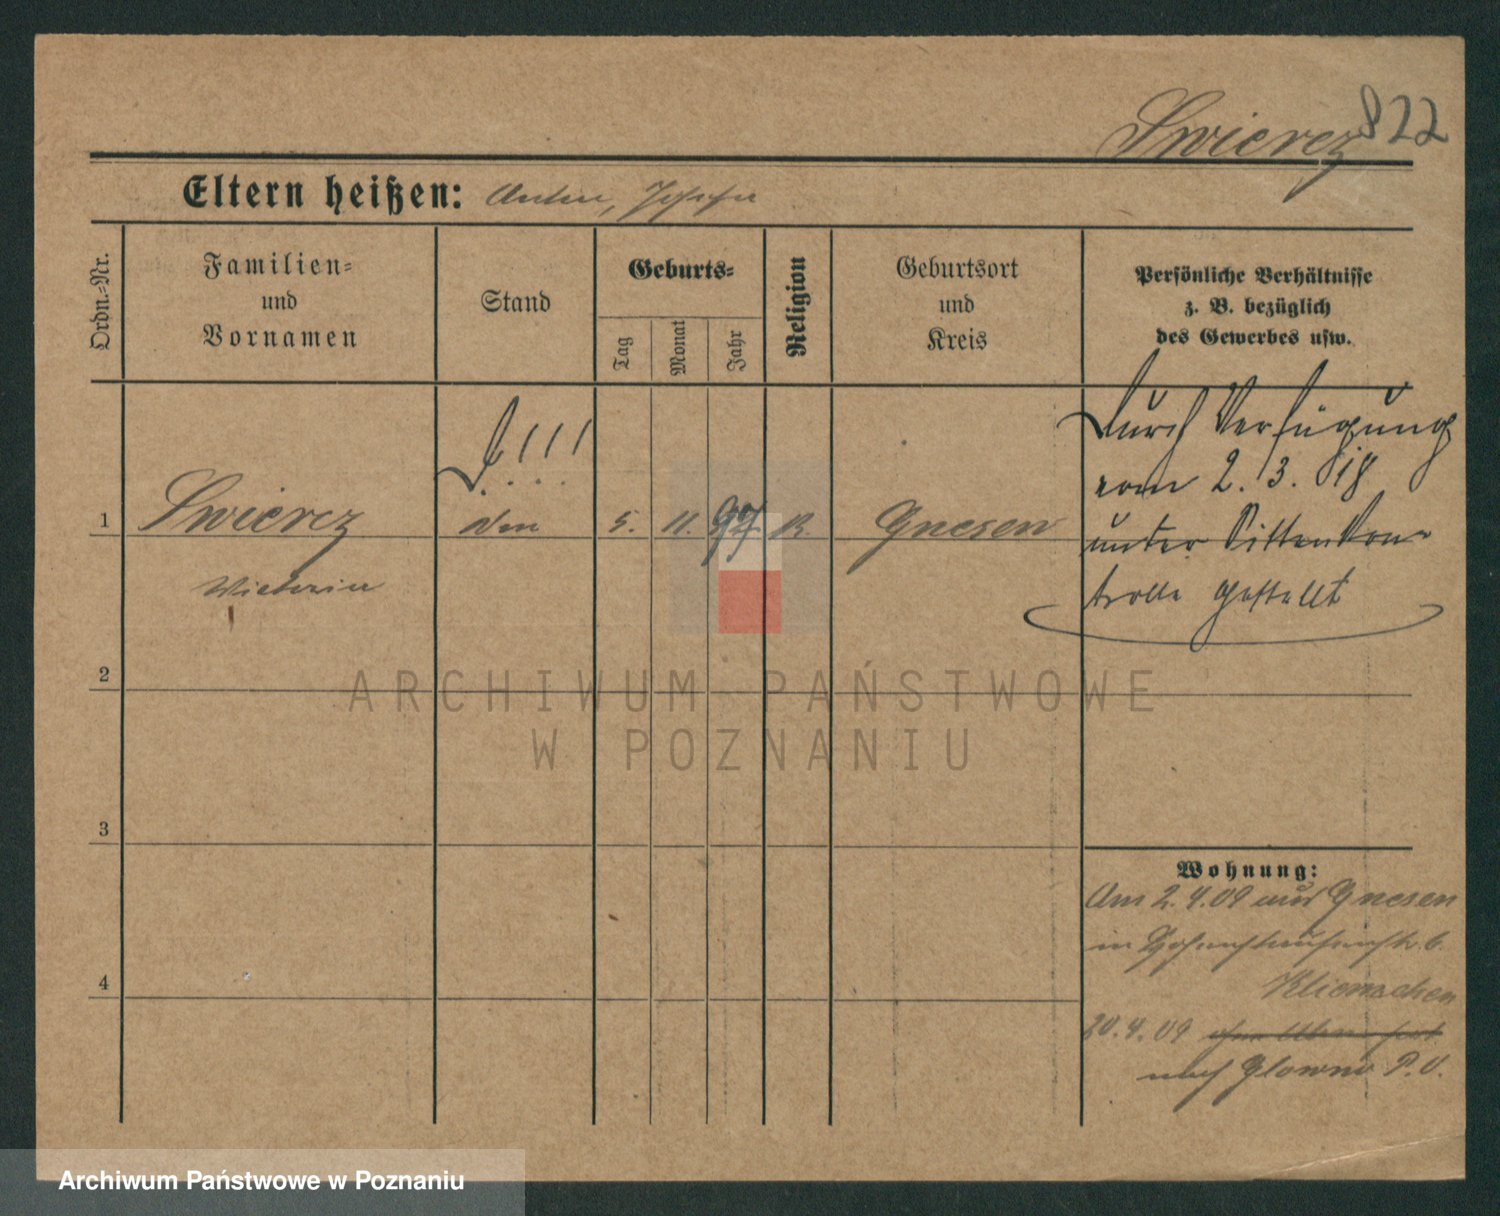 Swiercz 822
Eltern heißen: Anton, Josefa
Ordn.=Nr.
Familien=
und
Vornamen
Stand
Geburts=
Tag
Monat
Jahr
Religion
Geburtsort
und
Kreis
Persönliche Verhältnisse
z. B. bezüglich
des Gewerbes usw.
1
Swiercz
5. 11. 97 K.
Gnesen
Durch Verfügung
vom 2. 3. 18
unter Sittenkon-
trolle gestellt
2
3
4
Wohnung:
Am 2.4.09 aus Gnesen
in Hohenstaufenstr. 6.
20.4.09
nach Glowno P.O.
ARCHIWUM PAŃSTWOWE
W POZNANIU
Archiwum Państwowe w Poznaniu